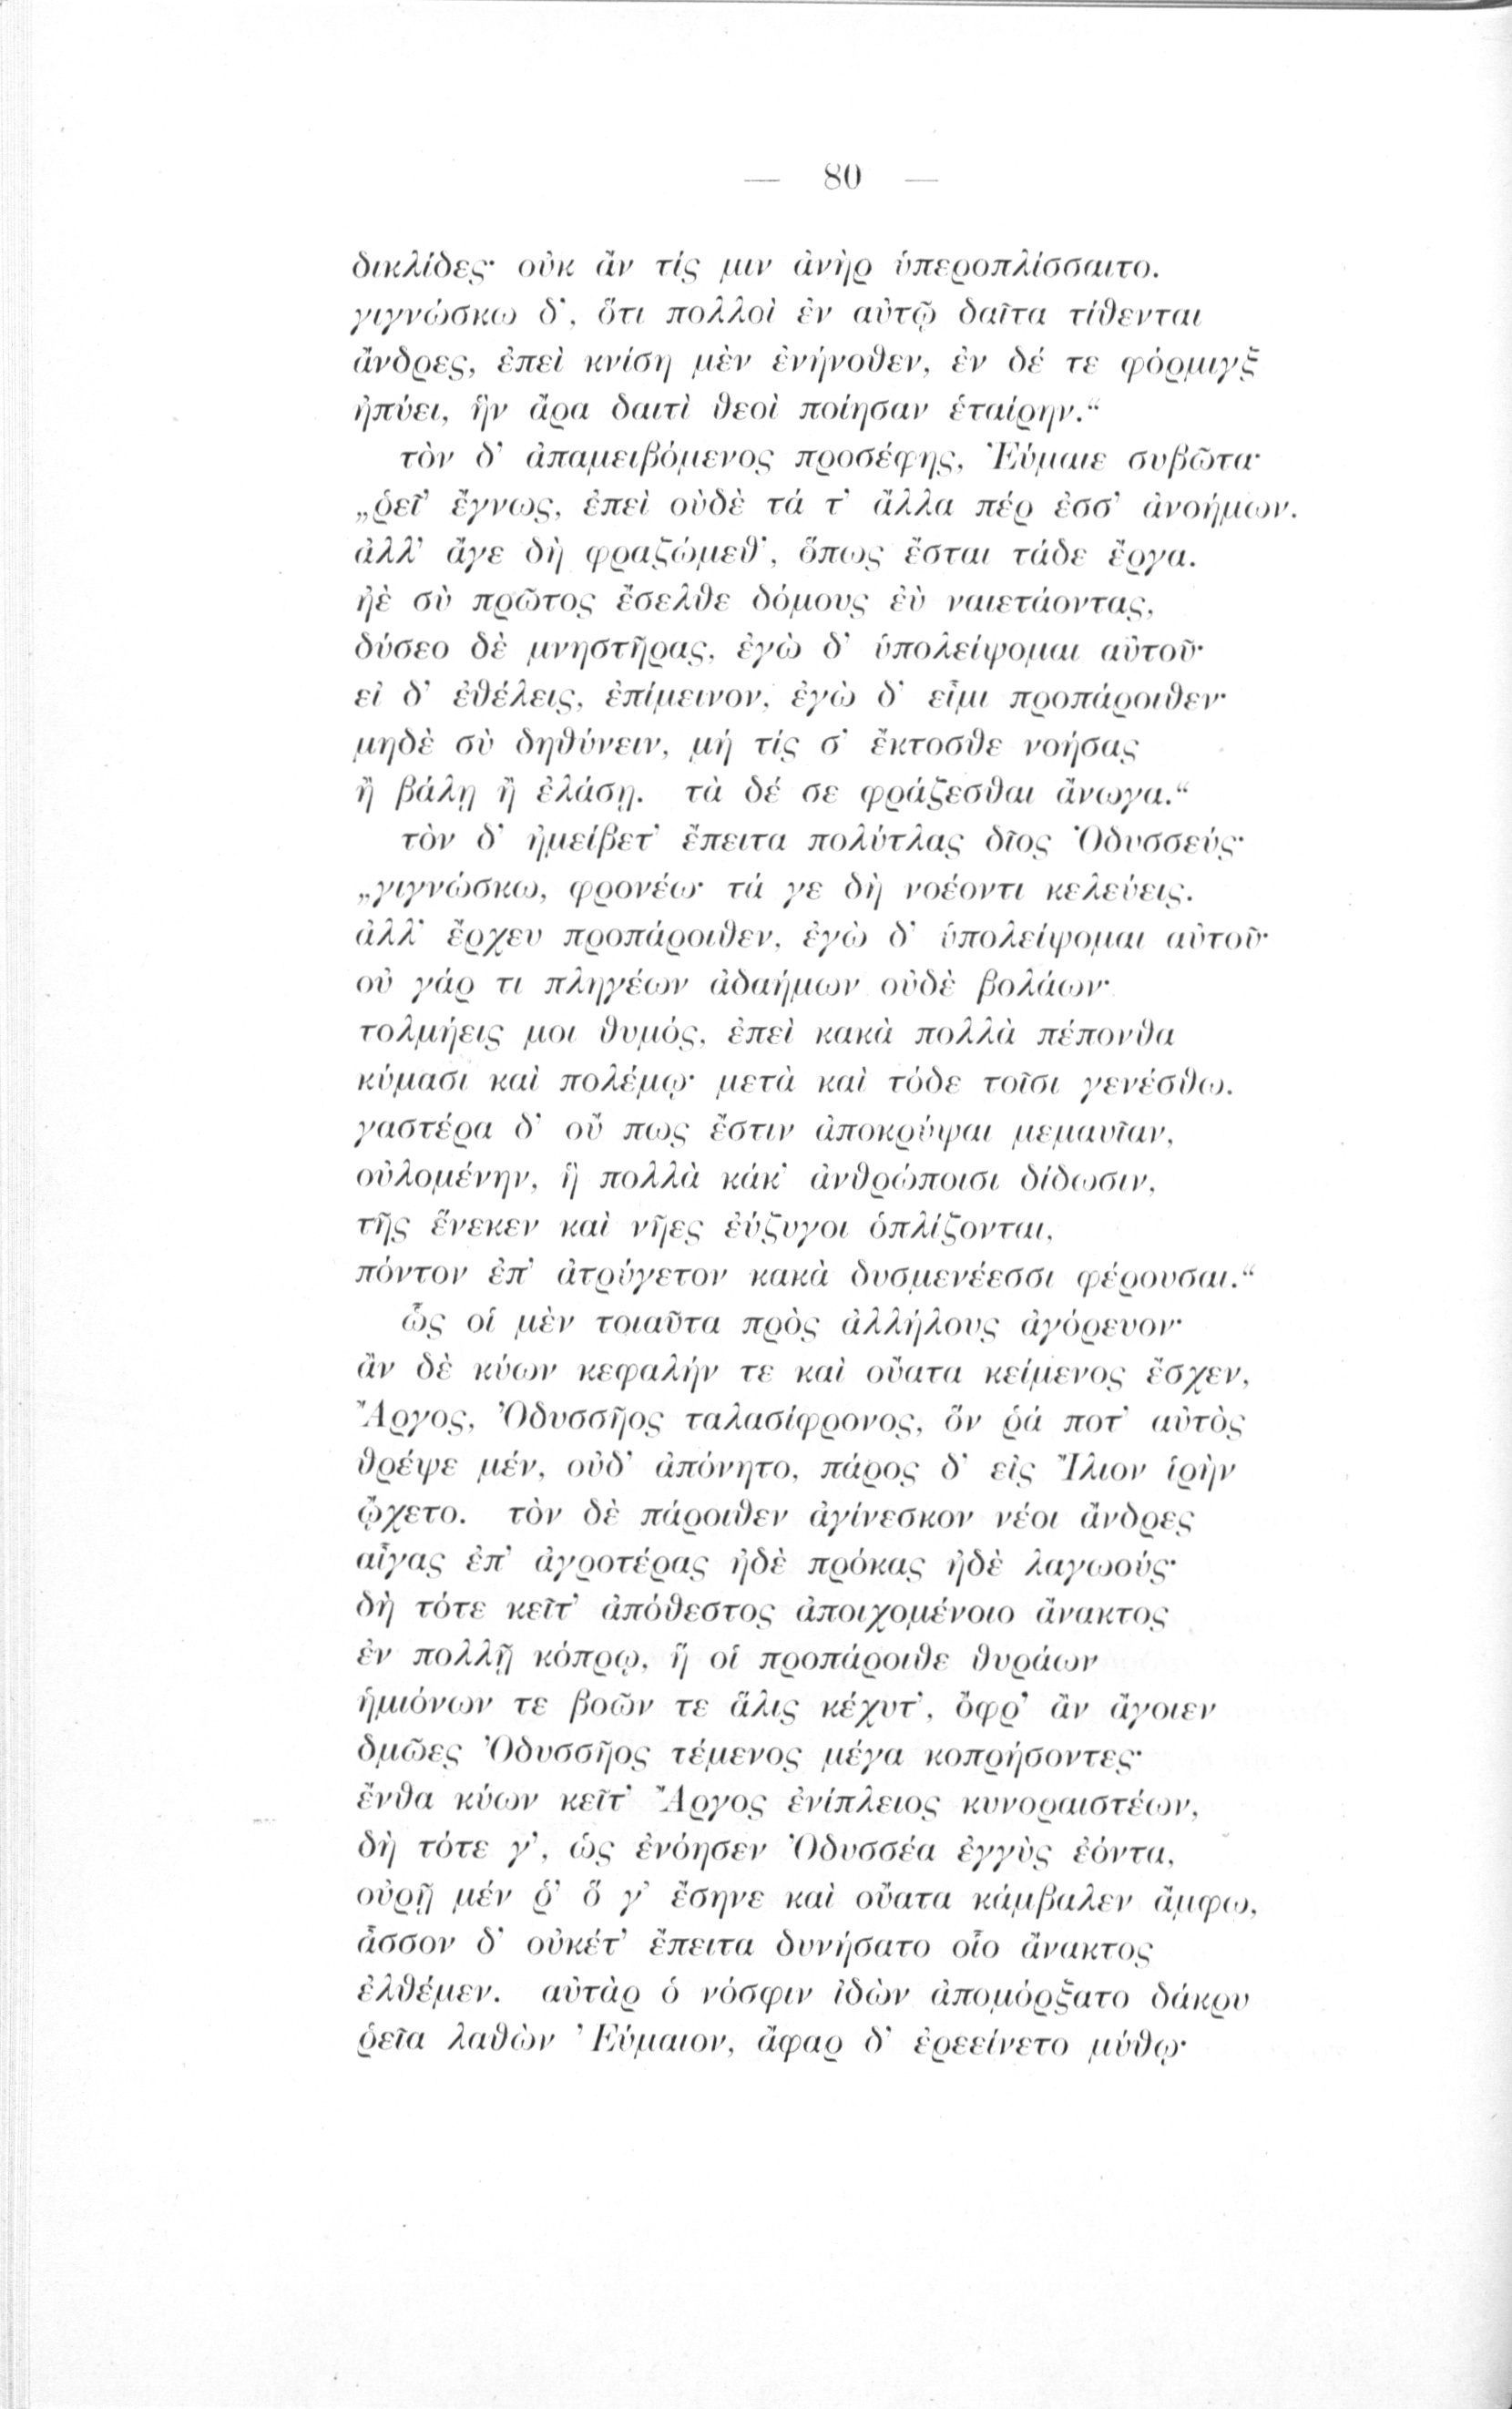 — 80 —
δικλίδες· οὐκ ἄν τίς μιν ἀνὴρ ὑπεροπλίσσαιτο.
γιγνώσκω δ', ὅτι πολλοὶ ἐν αὐτῷ δαῖτα τίθενται
ἄνδρες, ἐπεὶ κνίση μὲν ἐνήνοθεν, ἐν δέ τε φόρμιγξ
ἠπύει, ἣν ἄρα δαιτὶ θεοὶ ποίησαν ἑταίρην.“
τὸν δ' ἀπαμειβόμενος προσέφης, Ἐύμαιε συβῶτα·
„ῥεῖ' ἔγνως, ἐπεὶ οὐδὲ τά τ' ἄλλα πέρ ἐσσ' ἀνοήμων.
ἀλλ' ἄγε δὴ φραζώμεθ', ὅπως ἔσται τάδε ἔργα.
ἠὲ σὺ πρῶτος ἔσελθε δόμους ἐὺ ναιετάοντας,
δύσεο δὲ μνηστῆρας, ἐγὼ δ' ὑπολείψομαι αὐτοῦ·
εἰ δ' ἐθέλεις, ἐπίμεινον, ἐγὼ δ' εἶμι προπάροιθεν·
μηδὲ σὺ δηθύνειν, μή τίς σ' ἔκτοσθε νοήσας
ἢ βάλῃ ἢ ἐλάσῃ. τὰ δέ σε φράζεσθαι ἄνωγα.“
τὸν δ' ἠμείβετ' ἔπειτα πολύτλας δῖος Ὀδυσσεύς·
„γιγνώσκω, φρονέω· τά γε δὴ νοέοντι κελεύεις.
ἀλλ' ἔρχευ προπάροιθεν, ἐγὼ δ' ὑπολείψομαι αὐτοῦ·
οὐ γάρ τι πληγέων ἀδαήμων οὐδὲ βολάων·
τολμήεις μοι θυμός, ἐπεὶ κακὰ πολλὰ πέπονθα
κύμασι καὶ πολέμῳ· μετὰ καὶ τόδε τοῖσι γενέσθω.
γαστέρα δ' οὔ πως ἔστιν ἀποκρύψαι μεμαυῖαν,
οὐλομένην, ἣ πολλὰ κάκ' ἀνθρώποισι δίδωσιν,
τῆς ἕνεκεν καὶ νῆες ἐύζυγοι ὁπλίζονται,
πόντον ἐπ' ἀτρύγετον κακὰ δυσμενέεσσι φέρουσαι.“
ὣς οἱ μὲν τοιαῦτα πρὸς ἀλλήλους ἀγόρευον·
ἂν δὲ κύων κεφαλήν τε καὶ οὔατα κείμενος ἔσχεν,
Ἄργος, Ὀδυσσῆος ταλασίφρονος, ὅν ῥά ποτ' αὐτὸς
θρέψε μέν, οὐδ' ἀπόνητο, πάρος δ' εἰς Ἴλιον ἱρὴν
ᾤχετο. τὸν δὲ πάροιθεν ἀγίνεσκον νέοι ἄνδρες
αἶγας ἐπ' ἀγροτέρας ἠδὲ πρόκας ἠδὲ λαγωούς·
δὴ τότε κεῖτ' ἀπόθεστος ἀποιχομένοιο ἄνακτος
ἐν πολλῇ κόπρῳ, ἥ οἱ προπάροιθε θυράων
ἡμιόνων τε βοῶν τε ἅλις κέχυτ', ὄφρ' ἂν ἄγοιεν
δμῶες Ὀδυσσῆος τέμενος μέγα κοπρήσοντες·
ἔνθα κύων κεῖτ' Ἄργος ἐνίπλειος κυνοραιστέων,
δὴ τότε γ', ὡς ἐνόησεν Ὀδυσσέα ἐγγὺς ἐόντα,
οὐρῇ μέν ῥ' ὅ γ' ἔσηνε καὶ οὔατα κάμβαλεν ἄμφω,
ἆσσον δ' οὐκέτ' ἔπειτα δυνήσατο οἷο ἄνακτος
ἐλθέμεν. αὐτὰρ ὁ νόσφιν ἰδὼν ἀπομόρξατο δάκρυ
ῥεῖα λαθὼν Ἐύμαιον, ἄφαρ δ' ἐρεείνετο μύθῳ·